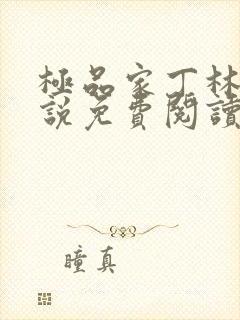 極品家丁林
說免費閱讀
瞳真